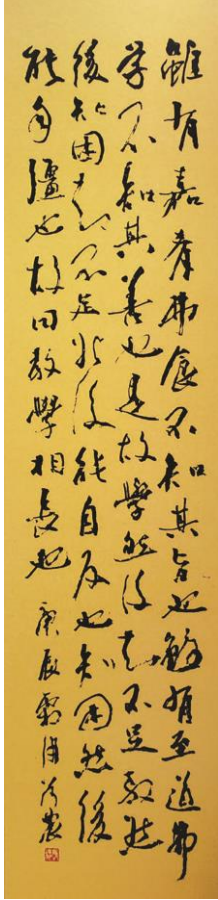 雖有嘉肴弗食不知其旨也雖有至道弗
学不知其善也是故學然後知不足教然
後知困知不足然後能自反也知困然後
能自彊也故曰教學相長也 庚辰